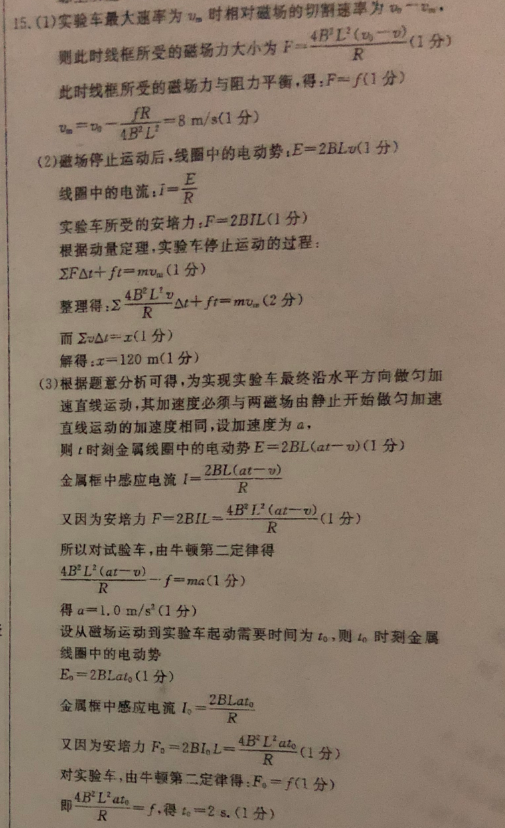 15.(1)实验车最大速率为 vₘ 时相对磁场的切割速率为 v₀－vₘ,
则此时线框所受的磁场力大小为 F=4B²L²(v₀-v)/R(1分)
此时线框所受的磁场力与阻力平衡,得:F=f(1分)
vₘ=v₀-fR/4B²L²=8 m/s(1分)
(2)磁场停止运动后,线圈中的电动势:E=2BLv(1分)
线圈中的电流:i=E/R
实验车所受的安培力:F=2BIL(1分)
根据动量定理,实验车停止运动的过程:
ΣFΔt+ft=mvₘ(1分)
整理得:Σ4B²L²v/RΔt+ft=mvₘ(2分)
而 ΣvΔt=x(1分)
解得:x=120 m(1分)
(3)根据题意分析可得,为实现实验车最终沿水平方向做匀加
速直线运动,其加速度必须与两磁场由静止开始做匀加速
直线运动的加速度相同,设加速度为 a,
则 t 时刻金属线圈中的电动势 E=2BL(at-v)(1分)
金属框中感应电流 I=2BL(at-v)/R
又因为安培力 F=2BIL=4B²L²(at-v)/R(1分)
所以对试验车,由牛顿第二定律得
4B²L²(at-v)/R-f=ma(1分)
得 a=1.0 m/s²(1分)
设从磁场运动到实验车起动需要时间为 t₀,则 t₀ 时刻金属
线圈中的电动势
E₀=2BLat₀(1分)
金属框中感应电流 I₀=2BLat₀/R
又因为安培力 F₀=2BI₀L=4B²L²at₀/R(1分)
对实验车,由牛顿第二定律得:F₀=f(1分)
即4B²L²at₀/R=f,得 t₀=2 s.(1分)